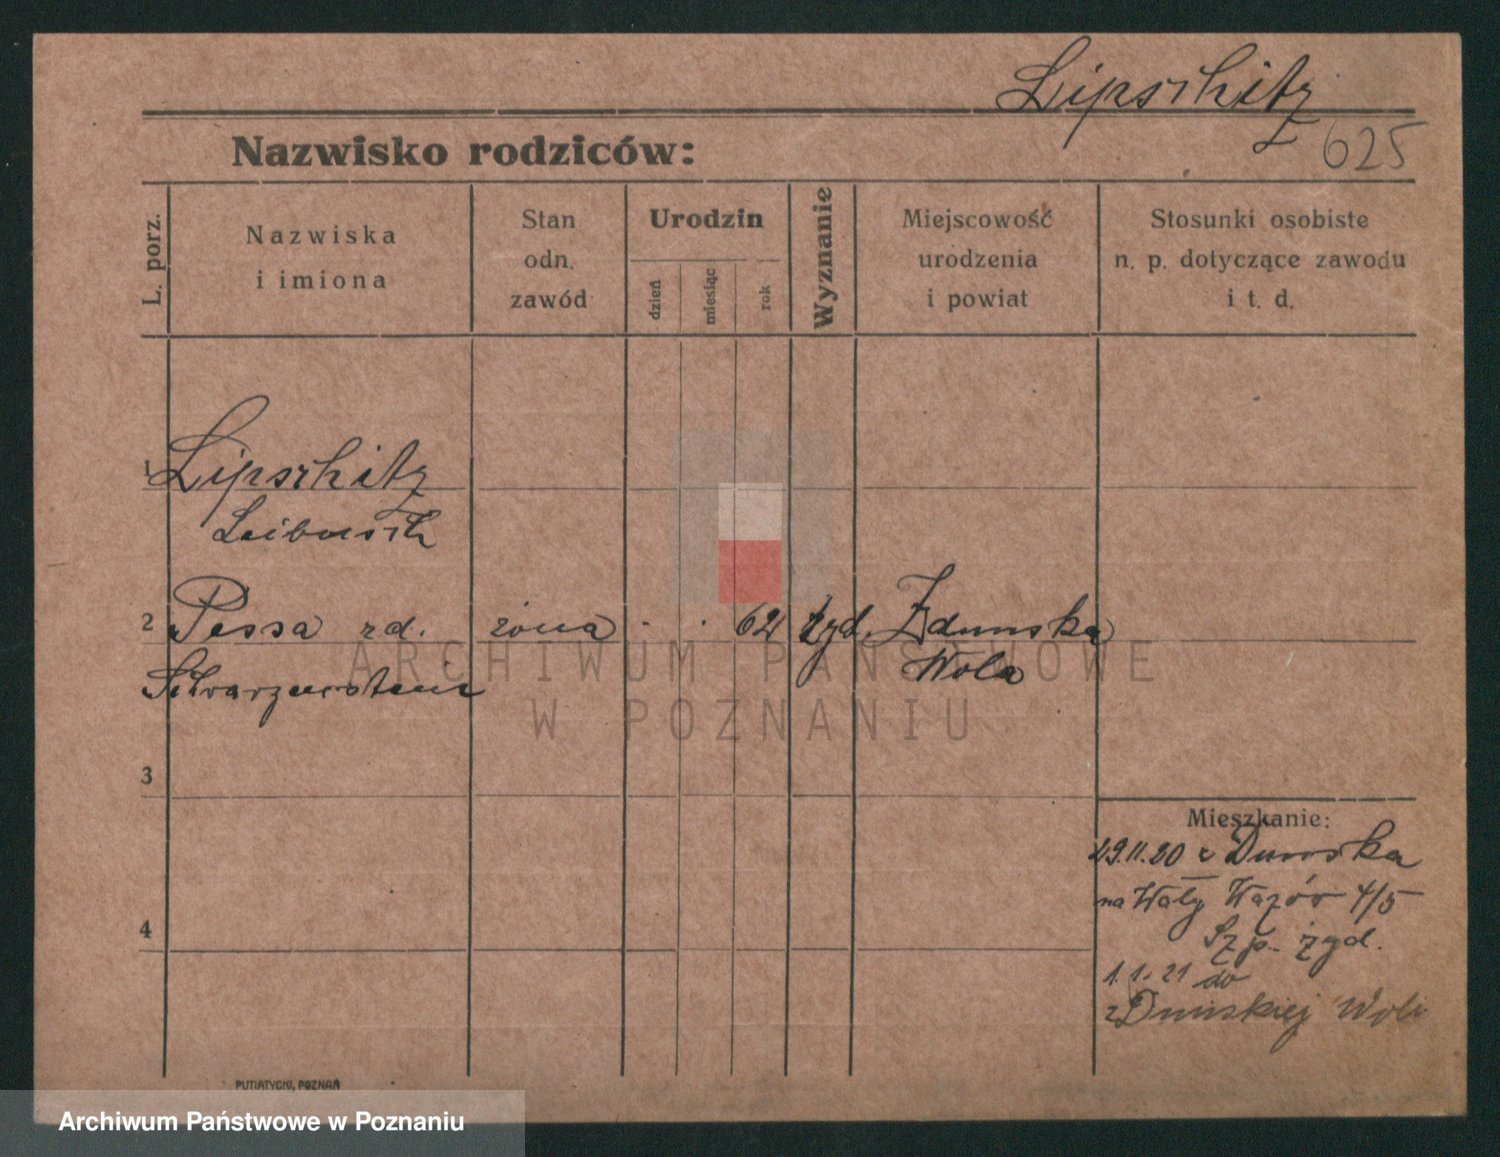 Lipschitz
625
Nazwisko rodziców:
L. porz.
Nazwiska
i imiona
Stan
odn.
zawód
Urodzin
dzień
miesiąc
rok
Wyznanie
Miejscowość
urodzenia
i powiat
Stosunki osobiste
n. p. dotyczące zawodu
i t. d.
1 Lipschitz
2 Pessa rd. żona . . 62 żyd. Zdunska
Wola
3
4
Mieszkanie:
29.11.20 z Dunska
na Wały Wazów 4/5
Szp. żyd.
1.1.21 do
zDunskiej Woli
PUTIATYCKI, POZNAŃ
ARCHIWUM PAŃSTWOWE
W POZNANIU
Archiwum Państwowe w Poznaniu